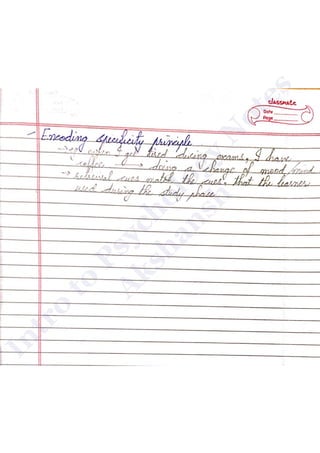 classmate
Date
Page
Encoding specificity principle
→ when I get tired during exams, I have
coffee → doing a change of mood/mind
→ retrieval cues match the cues that the learner
used during the study phase
Intro to Psychology Notes
Akshansh